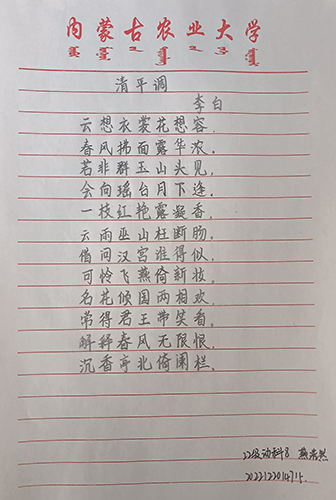 内蒙古农业大学
清平调
李白
云想衣裳花想容,
春风拂面露华浓.
若非群玉山头见,
会向瑶台月下逢.
一枝红艳露凝香,
云雨巫山枉断肠.
借问汉宫谁得似,
可怜飞燕倚新妆.
名花倾国两相欢,
常得君王带笑看,
解释春风无限恨,
沉香亭北倚阑栏.